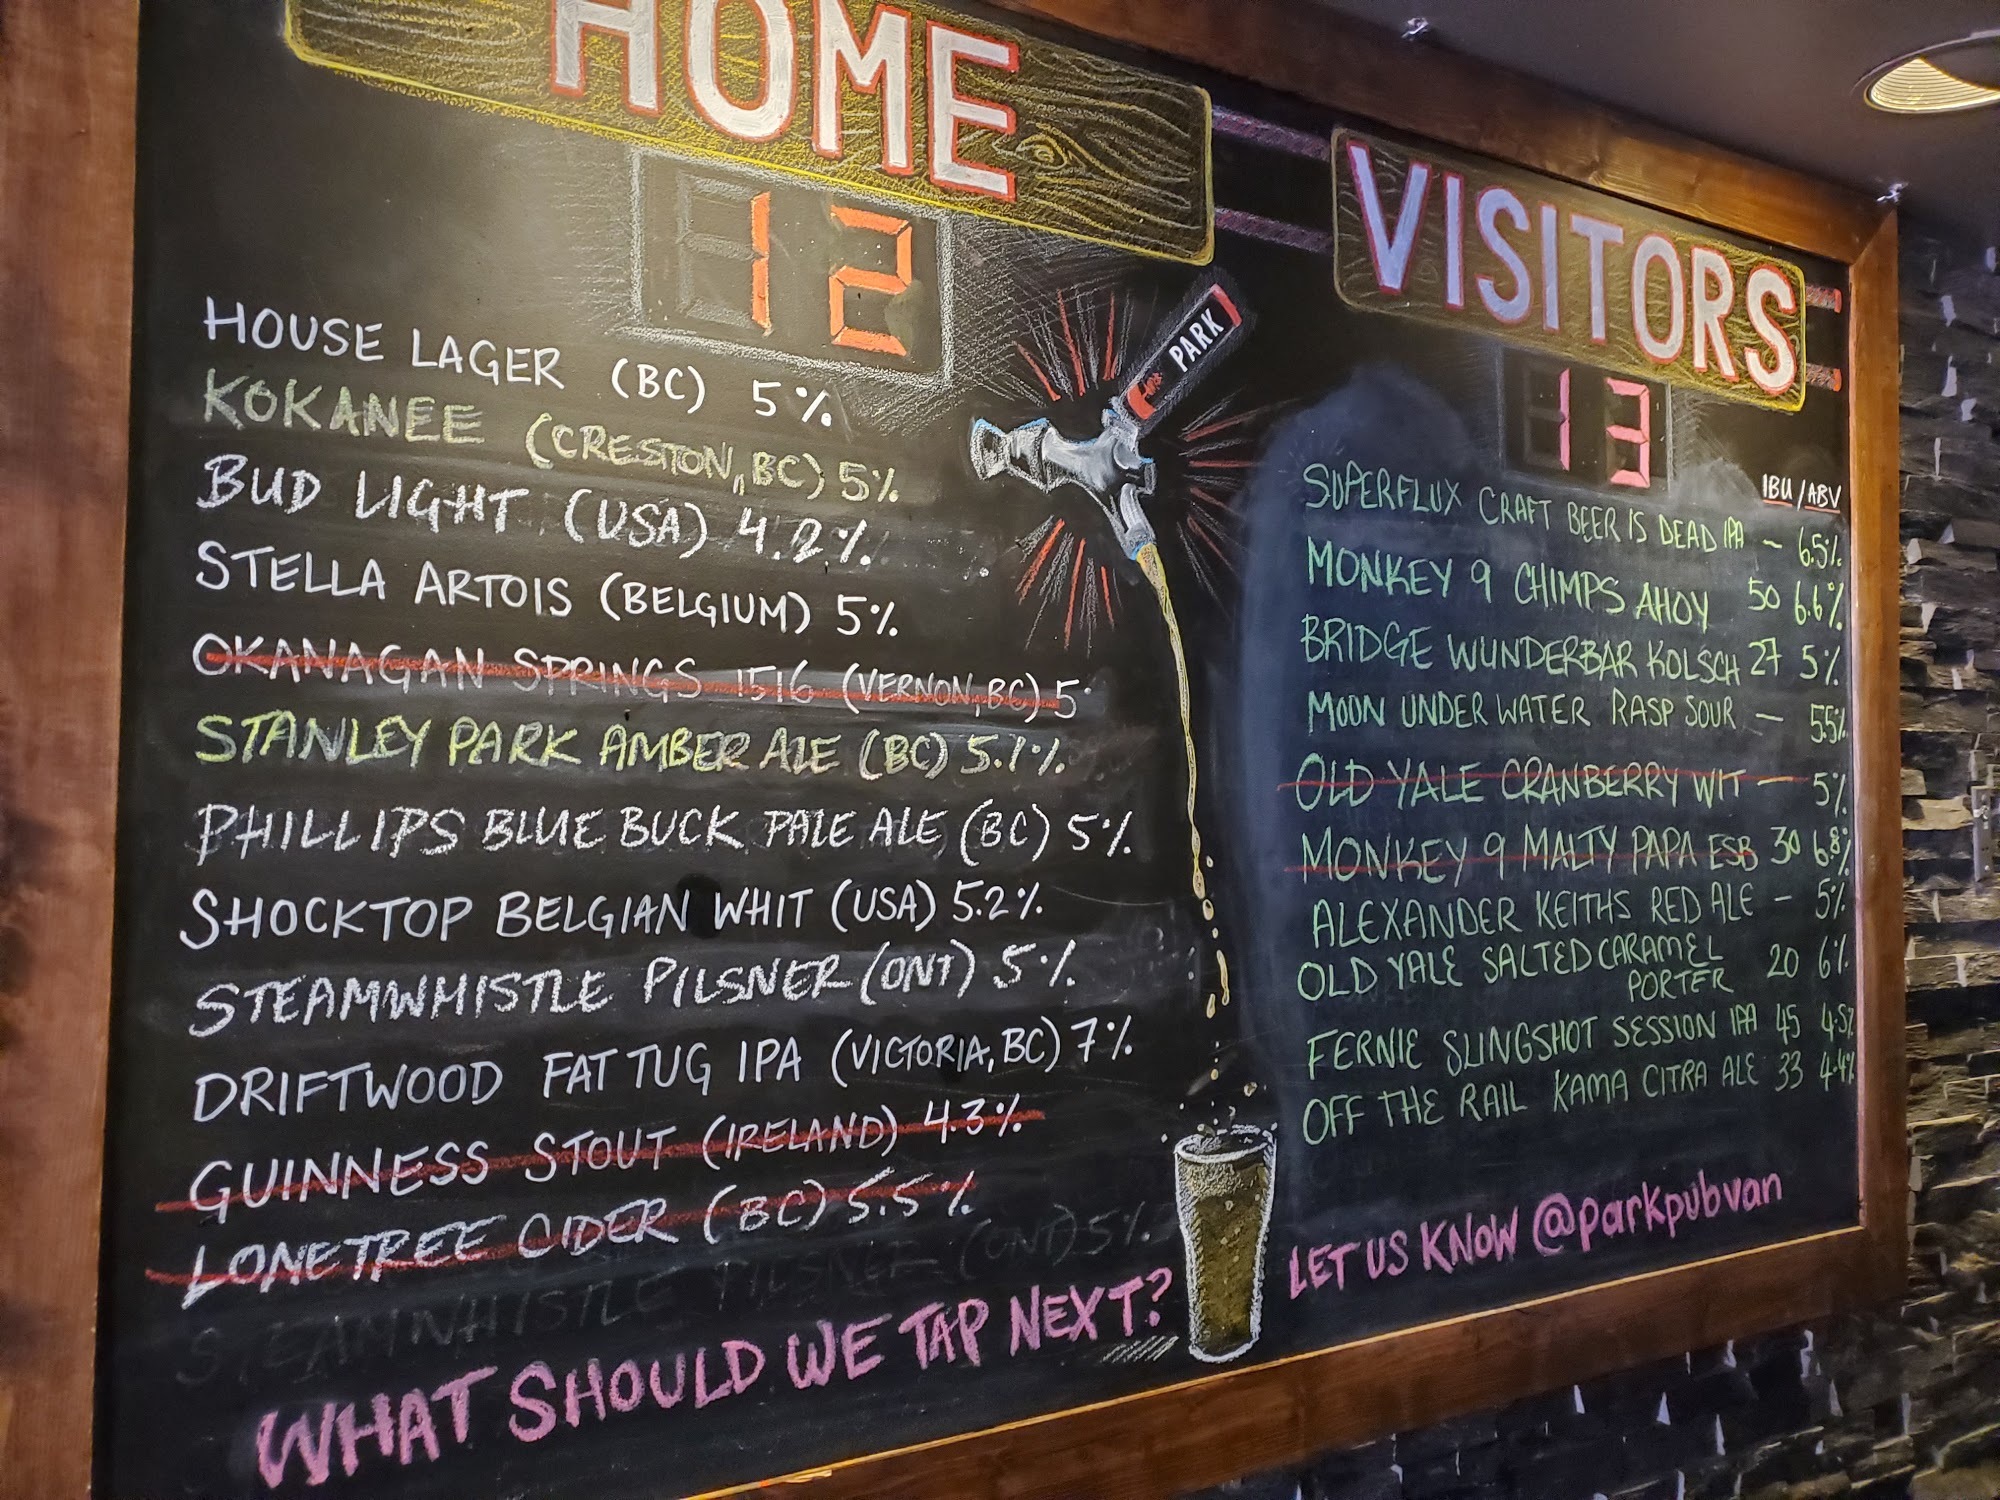 HOME
12
HOUSE LAGER (BC) 5%
KOKANEE (CRESTON, BC) 5%
BUD LIGHT (USA) 4.2%
STELLA ARTOIS (BELGIUM) 5%
OKANAGAN SPRINGS 1516 (VERNON, BC) 5
STANLEY PARK AMBER ALE (BC) 5.1%
PHILLIPS BLUE BUCK PALE ALE (BC) 5%
SHOCKTOP BELGIAN WHIT (USA) 5.2%
STEAMWHISTLE PILSNER (ONT) 5%
DRIFTWOOD FAT TUG IPA (VICTORIA, BC) 7%
GUINNESS STOUT (IRELAND) 4.3%
LONETREE CIDER (BC) 5.5%
STEAMWHISTLE PILSNER (ONT) 5%
WHAT SHOULD WE TAP NEXT?
PARK
VISITORS
13
IBU / ABV
SUPERFLUX CRAFT BEER IS DEAD IPA - 6.5%
MONKEY 9 CHIMPS AHOY 50 6.6%
BRIDGE WUNDERBAR KOLSCH 27 5%
MOON UNDER WATER RASP SOUR - 5.5%
OLD YALE CRANBERRY WIT - 5%
MONKEY 9 MALTY PAPA ESB 30 6.8%
ALEXANDER KEITHS RED ALE - 5%
OLD YALE SALTED CARAMEL
PORTER 20 6%
FERNIE SLINGSHOT SESSION IPA 45 4.5%
OFF THE RAIL KAMA CITRA ALE 33 4.4%
LET US KNOW @parkpubvan